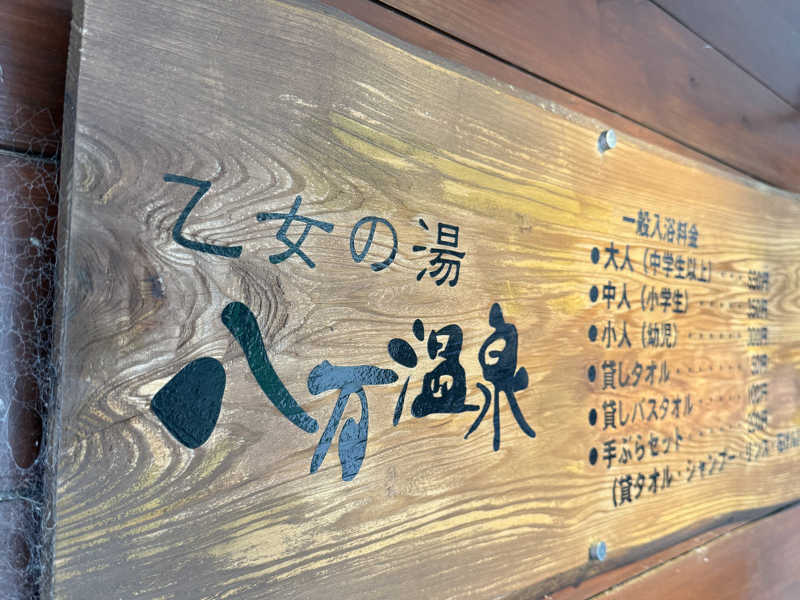 乙女の湯
八万温泉
一般入浴料金
●大人（中学生以上）
●中人（小学生）
●小人（幼児）
●貸しタオル
●貸しバスタオル
●手ぶらセット
（貸タオル・シャンプー・リンス・